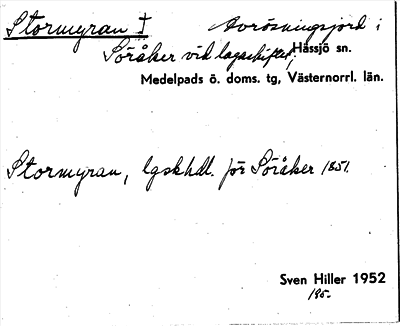 Stormyran † Avrösningsjord i
Söråker vid lagaskiftet, Hässjö sn.
Medelpads ö. doms. tg, Västernorrl. län.
Stormyran, lgskhdl. för Söråker 1851.
Sven Hiller 1952
195-